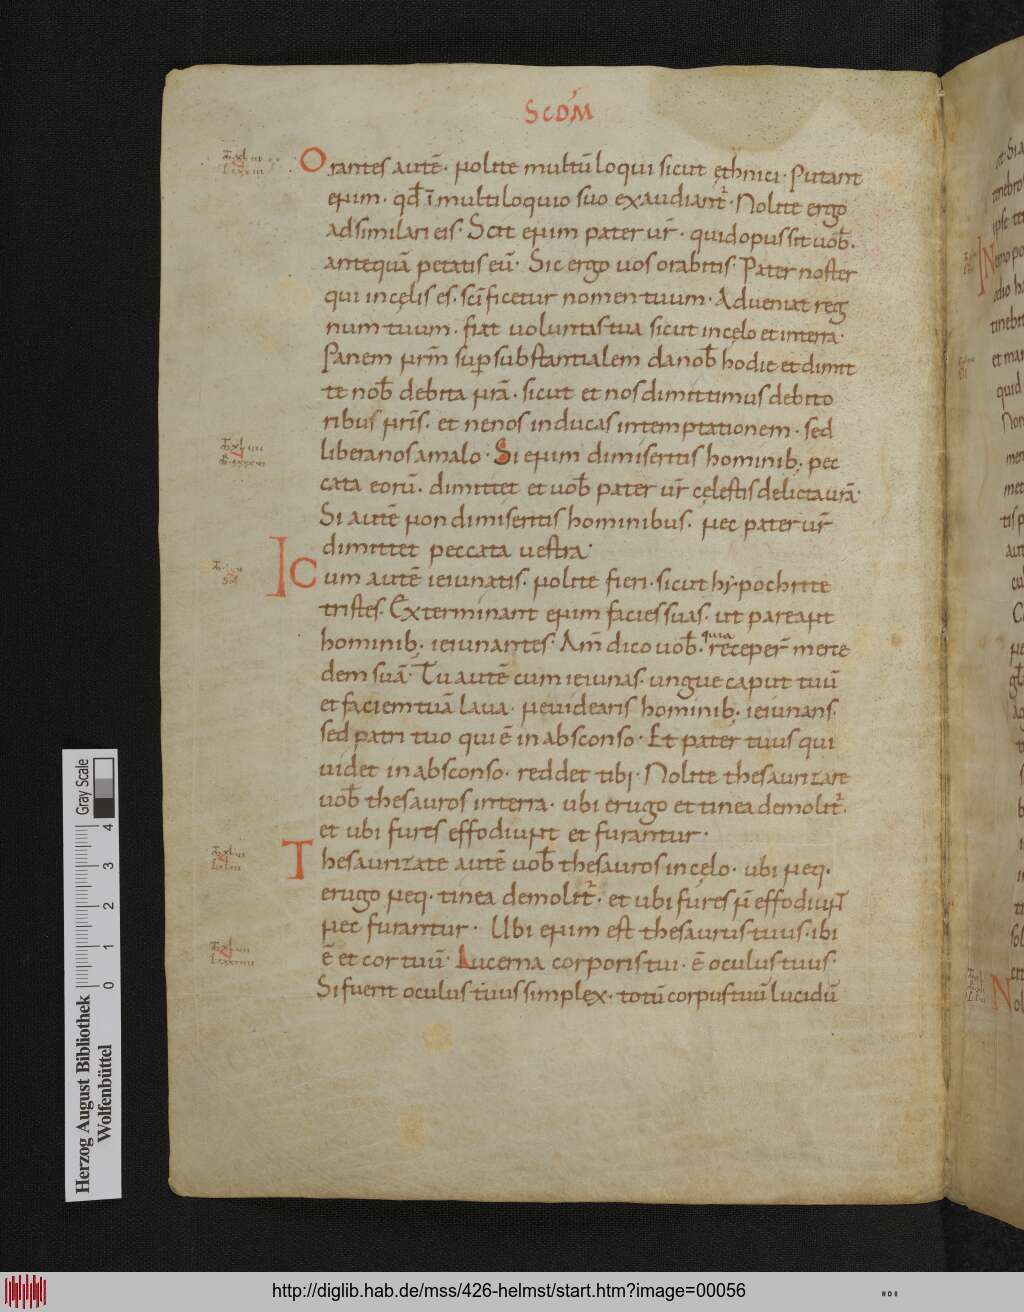 SCDM
Orantes autē. nolite multū loqui sicut ęthnici. Putant
enim. qđ ī multiloquio suo exaudiant᷑. Nolite ergo
adsimilari eis. Scit enim pater ur̄. quid opus sit uob̄.
antequā petatis eū. Sic ergo uos orabitis. Pater noster
qui in cęlis es. scīficetur nomen tuum. Adueniat reg
num tuum. fiat uoluntas tua sicut in cęlo et in terra.
Panem nrm̄ sup̱substantialem da nob̄ hodie et dimit
te nob̄ debita nrā. sicut et nos dimittimus debito
ribus nrīs. et ne nos inducas in temptationem. sed
libera nos a malo. Si enim dimiseritis hominib; pec
cata eorū. dimittet et uob̄ pater ur̄ cęlestis delicta urā.
Si autē non dimiseritis hominibus. nec pater ur̄
dimittet peccata uestra.
Cum autē ieiunatis. nolite fieri. sicut hypochrite
tristes. Exterminant enim facies suas. ut pareant
hominib; ieiunantes. Am̄ dico uob̄. quia receper̄ merce
dem suā. Tu autē cum ieiunas. ungue caput tuū
et faciem tuā laua. ne uidearis hominib; ieiunans.
sed patri tuo qui ē in absconso. Et pater tuus qui
uidet in absconso. reddet tibi. Nolite thesaurizare
uob̄ thesauros in terra. ubi erugo et tinea demolit᷑.
et ubi fures effodiunt et furantur.
Thesaurizate autē uob̄ thesauros in cęlo. ubi neq.
erugo neq. tinea demolit᷑. et ubi fures n̄ effodiunt
nec furantur. Ubi enim est thesaurus tuus. ibi
ē et cor tuū. Lucerna corporis tui. ē oculus tuus.
Si fuerit oculus tuus simplex. totū corpus tuū lucidū
Gray Scale
0 1 2 3 4
Herzog August Bibliothek
Wolfenbüttel
http://diglib.hab.de/mss/426-helmst/start.htm?image=00056